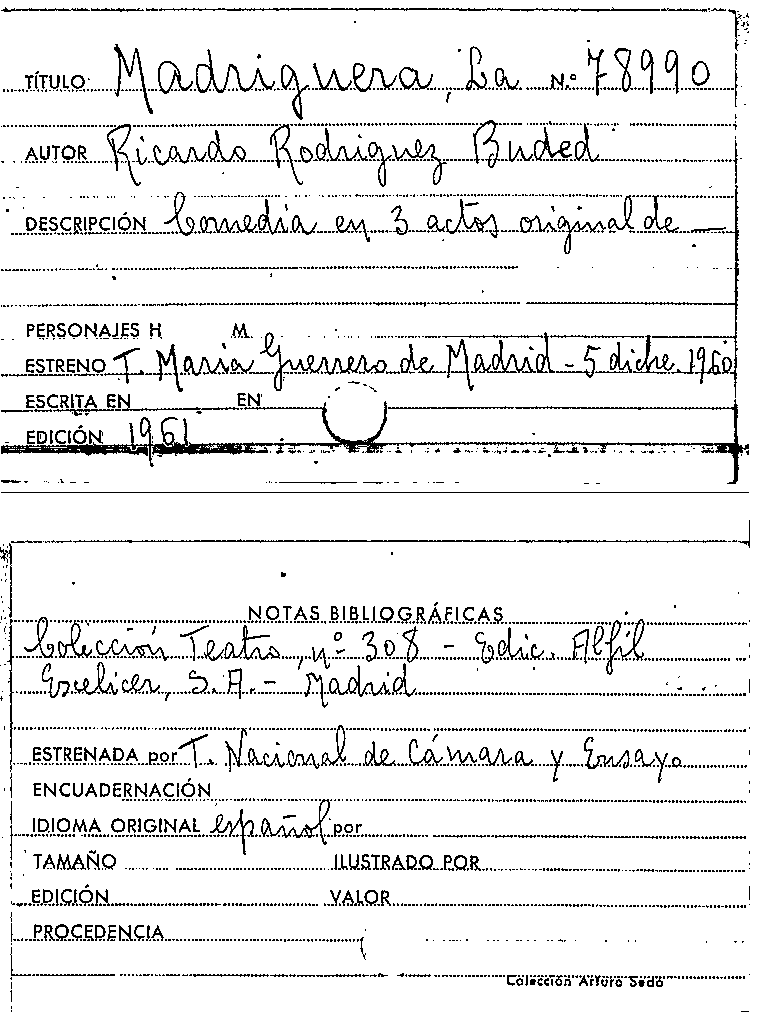 TÍTULO Madriguera, La N.º 78990
AUTOR Ricardo Rodriguez Buded
DESCRIPCIÓN Comedia en 3 actos original de —
PERSONAJES H M.
ESTRENO T. María Guerrero de Madrid - 5 dicbre. 1960
ESCRITA EN EN
EDICIÓN 1961
NOTAS BIBLIOGRÁFICAS
Colección Teatro, nº 308 - Edic. Alfil
Escelicer, S.A. - Madrid
ESTRENADA por T. Nacional de Cámara y Ensayo
ENCUADERNACIÓN
IDIOMA ORIGINAL español por
TAMAÑO ILUSTRADO POR
EDICIÓN VALOR
PROCEDENCIA
Colección Arturo Sedó